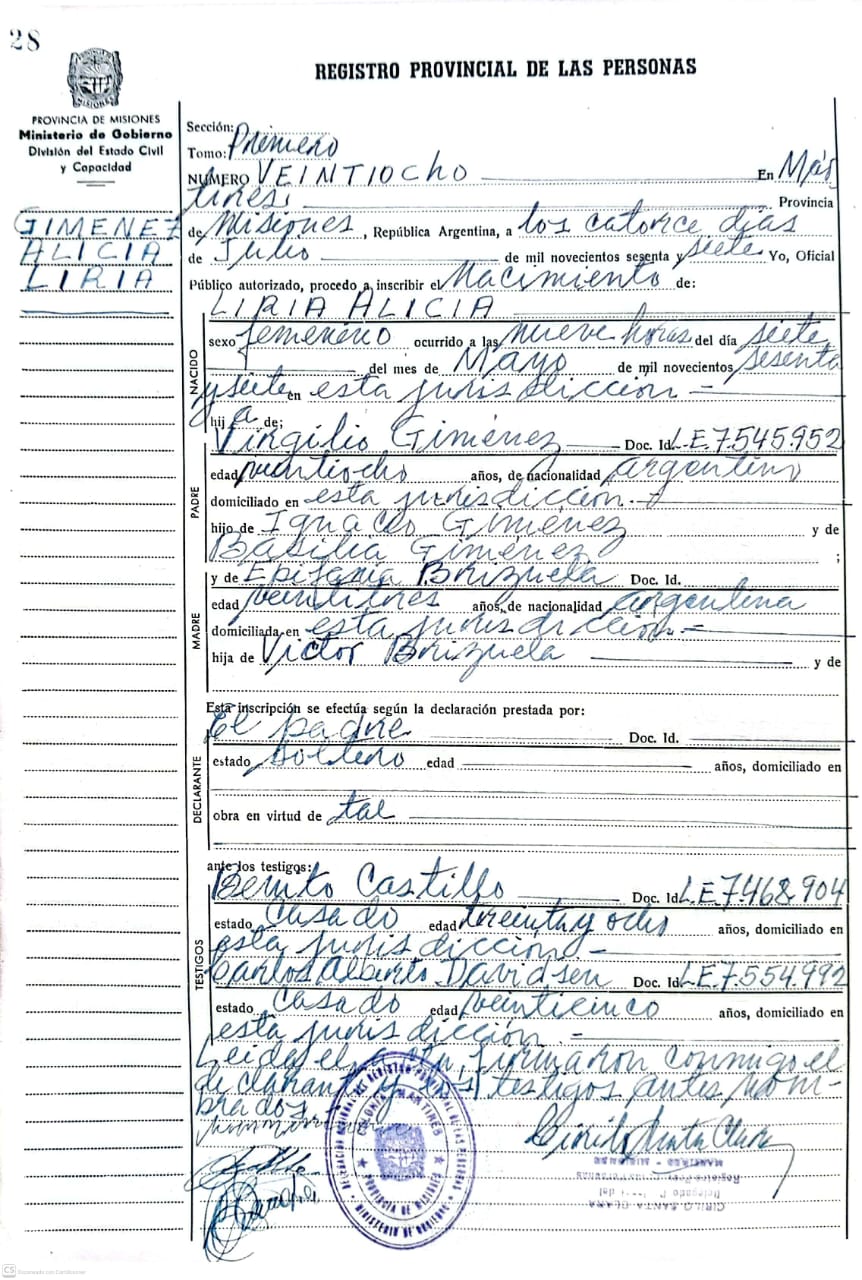 28
REGISTRO PROVINCIAL DE LAS PERSONAS
PROVINCIA DE MISIONES
Ministerio de Gobierno
División del Estado Civil
y Capacidad
GIMENEZ
ALICIA
LIRIA
Sección:
Tomo: Primero
NUMERO VEINTIOCHO En Már
tires; Provincia
de Misiones, República Argentina, a los catorce días
de Julio de mil novecientos sesenta y siete Yo, Oficial
Público autorizado, procedo a inscribir el Nacimiento de:
LIRIA ALICIA
NACIDO
sexo femenino ocurrido a las nueve horas del día siete
del mes de Mayo de mil novecientos sesenta
y siete en esta jurisdiccion -
hija de;
PADRE
Virgilio Giménez Doc. Id. L.E. 7.545.952
edad veintiocho años, de nacionalidad argentino
domiciliado en esta jurisdiccion.-
hijo de Ignacio Giménez y de
Basilia Giménez ;
MADRE
y de Epifania Brizuela Doc. Id.
edad veintitres años, de nacionalidad argentina
domiciliada en esta jurisdiccion.-
hija de Victor Brizuela y de
Esta inscripción se efectúa según la declaración prestada por:
DECLARANTE
El padre Doc. Id.
estado soltero edad años, domiciliado en
obra en virtud de tal
ante los testigos:
TESTIGOS
Benito Castillo Doc. Id. L.E. 7.468.904
estado Casado edad treinta y ocho años, domiciliado en
esta jurisdiccion -
Carlos Alberto Davidsen Doc. Id. L.E. 7.554.992
estado Casado edad veinticinco años, domiciliado en
esta jurisdicción.-
Leida el acta, firmaron conmigo el
declarante y testigos antes nom-
brados
Cirilo Santa Clara
COLONIA MARTIRES
PROVINCIA DE MISIONES
MINISTERIO DE GOBIERNO
CIRILO SANTA CLARA
MARTIRES - MISIONES
CS Escaneado con CamScanner